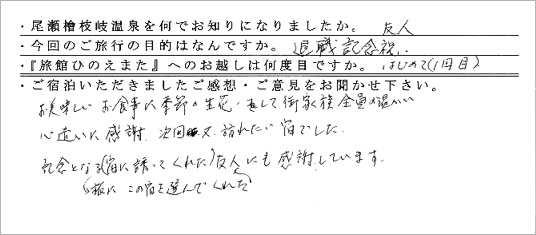 ・尾瀬檜枝岐温泉を何でお知りになりましたか。 友人
・今回のご旅行の目的はなんですか。 退職記念祝い
・『旅館ひのえまた』へのお越しは何度目ですか。 はじめて(1回目)
・ご宿泊いただきましたご感想・ご意見をお聞かせ下さい。
お美味しいお食事に季節の生花、そして御家族全員の温かい
心遣いに感謝、次回も又、訪れたい宿でした。
記念となる(宿に誘ってくれた)友人にも感謝しています。
(旅にこの宿を選んでくれた)